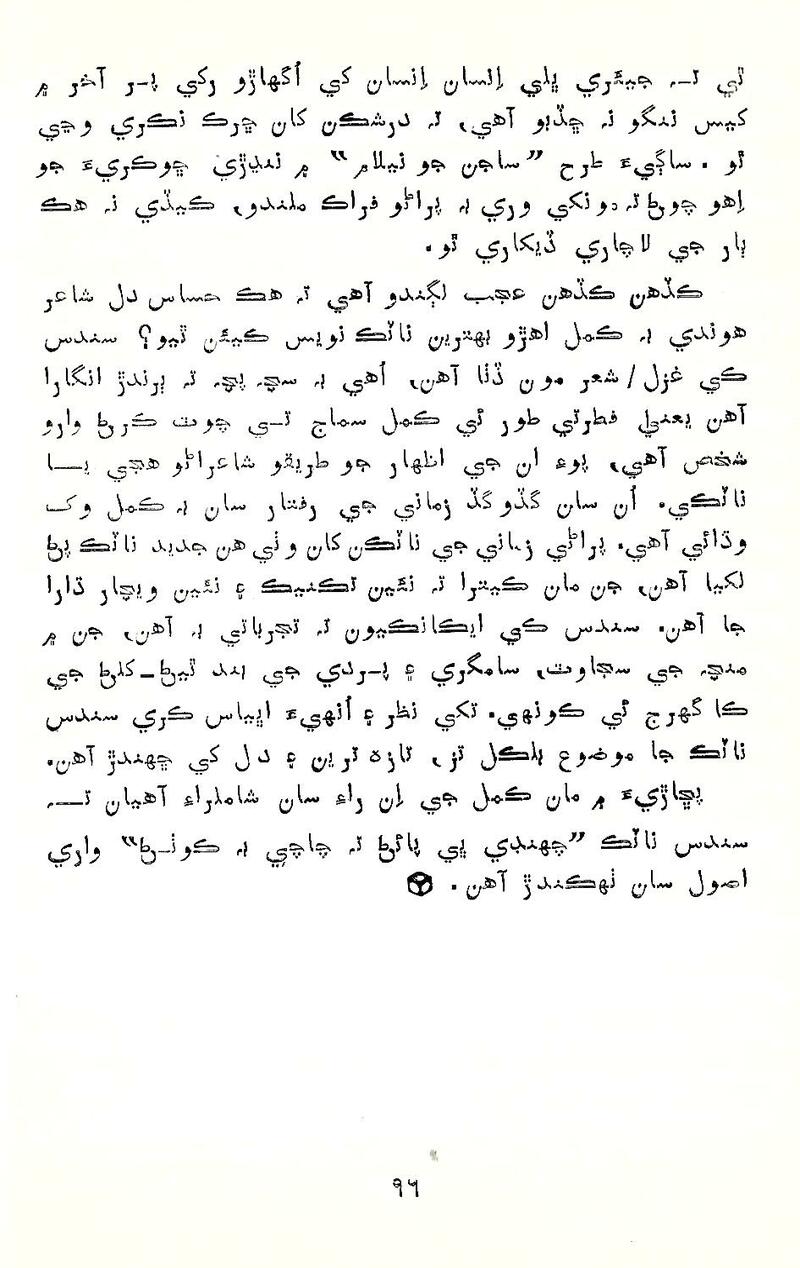 ٿي تـ، جيتري ڀلي اِنسان اِنسان کي اُگهاڙو رکي پـر آخر ۾
کيس ننگو نہ ڇڏيو آهي، تہ درشڪن کان ڇرڪ نڪري وڃي
ٿو . ساڳيءَ طرح ”ساڃن جو نيلام“ ۾ ننڍڙي ڇوڪريءَ جو
اِهو چوڻ تہ دونکي وري بہ پراڻو فراڪ ملندو، ڪيڏي نہ هڪ
ٻار جي لاچاري ڏيکاري ٿو .
ڪڏهن ڪڏهن عجب لڳندو آهي تہ هڪ حساس دل شاعر
هوندي بہ ڪمل اهڙو بهترين ناٽڪ نويس ڪيئن ٿيو؟ سندس
ڪي غزل/شعر مون ڏٺا آهن، اُهي بہ سچ پچ تہ ٻرندڙ انگارا
آهن يعني فطرتي طور ئي ڪمل سماج تـي چوٽ ڪرڻ وارو
شخص آهي، پوءِ ان جي اظهار جو طريقو شاعراڻو هجي يـا
ناٽڪي. اُن سان گڏوگڏ زماني جي رفتار سان بہ ڪمل وک
وڌائي آهي. پراڻي زماني جي ناٽڪن کان وٺي هن جديد ناٽڪ پڻ
لکيا آهن، جن مان ڪيترا تہ نئين تڪنيڪ ۽ نئين ويچار ڌارا
جا آهن. سندس ڪي ايڪانڪيون تہ تجرباتي بہ آهن، جن ۾
منچ جي سجاوٽ، سامگري ۽ پـردي جي بند ٿيڻ ـ کلڻ جي
ڪا گهرج ئي ڪونهي. تکي نظر ۽ اُنهيءَ اڀياس ڪري سندس
ناٽڪ جا موضوع بلڪل تز، تازه ترين ۽ دل کي ڇهندڙ آهن.
پڇاڙيءَ ۾ مان ڪمل جي اِن راءِ سان شاملراءِ آهيان تـہ
سندس ناٽڪ ”ڇهندي ئي پائڻ تہ چاچي بہ ڪونـڻ“ واري
اصول سان ٺهڪندڙ آهن .
٩٦